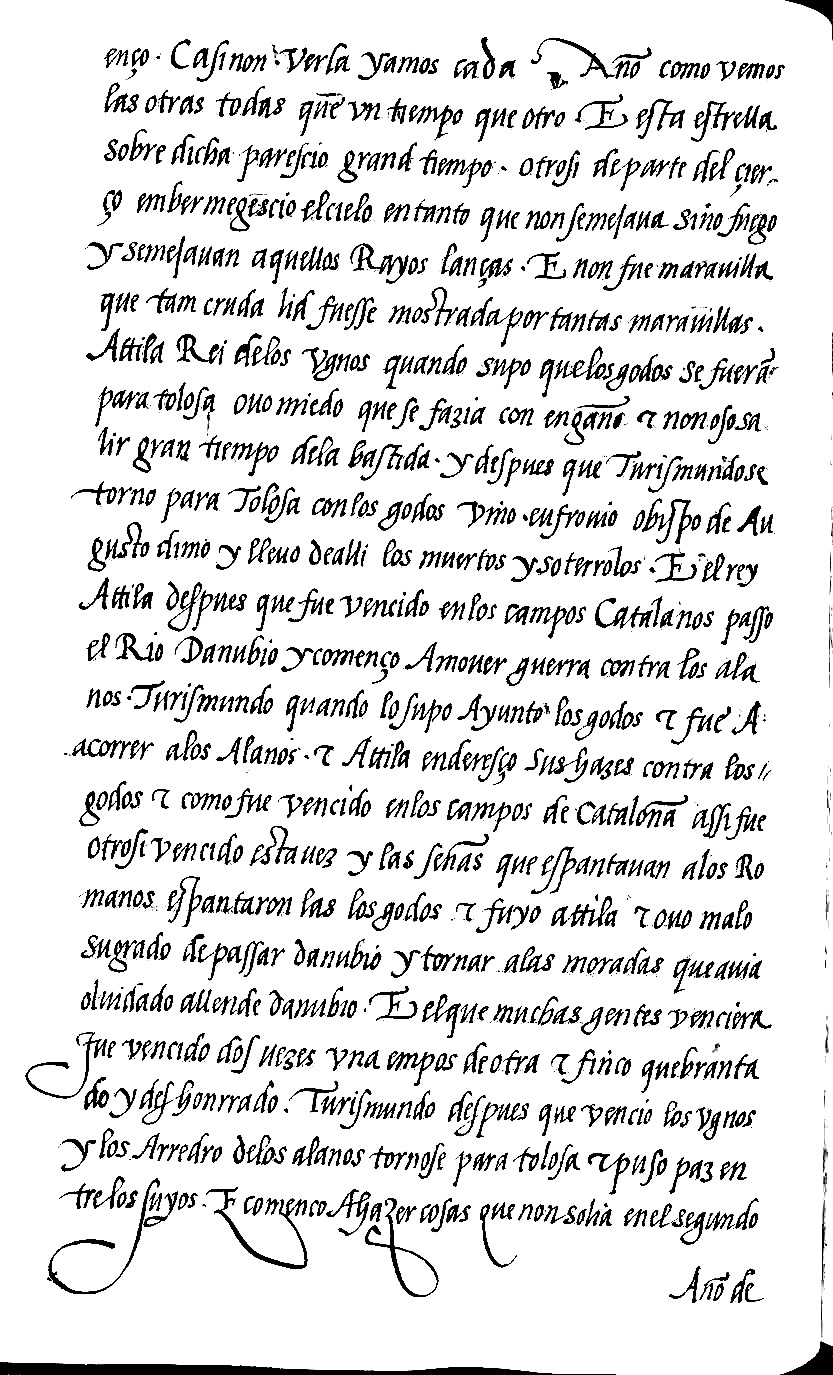 enço. Casi non Verla yamos cada Año como vemos
las otras todas que vn tiempo que otro. E esta estrella
sobre dicha parescio grand tiempo. otrosi de parte del çier-
ço embermegescio el cielo en tanto que non semejaua sino fuego
y semejauan aquellos Rayos lanças. E non fue marauilla
que tam cruda lid fuesse mostrada por tantas marauillas.
Attila Rei de los vgnos quando supo que los godos se fuerã
para tolosa ouo miedo que se fazia con engaño τ non oso sa
lir gran tiempo de la bastida. y despues que Turismundo se
torno para Tolosa con los godos vino eufronio obispo de Au
gusto dimo y lleuo de alli los muertos y soterrolos. E el rey
Attila despues que fue vencido en los campos Catalanos passo
el Rio Danubio y començo Amouer guerra contra los ala
nos. Turismundo quando lo supo Ayunto los godos τ fue A
acorrer a los Alanos. τ Attila enderesço sus hazes contra los //
godos τ como fue vencido en los campos de Cataloña assi fue
otrosi vencido esta uez y las señas que espantauan a los Ro
manos espantaron las los godos τ fuyo attila τ ouo malo
su grado de passar danubio y tornar a las moradas que auia
oluidado allende danubio. E el que muchas gentes venciera
fue vencido dos uezes vna empos de otra τ finco quebranta
do y deshonrrado. Turismundo despues que vencio los vgnos
y los Arredro de los alanos tornose para tolosa τ puso paz en
tre los suyos. E comenco Ahazer cosas que non solia en el segundo
Año de